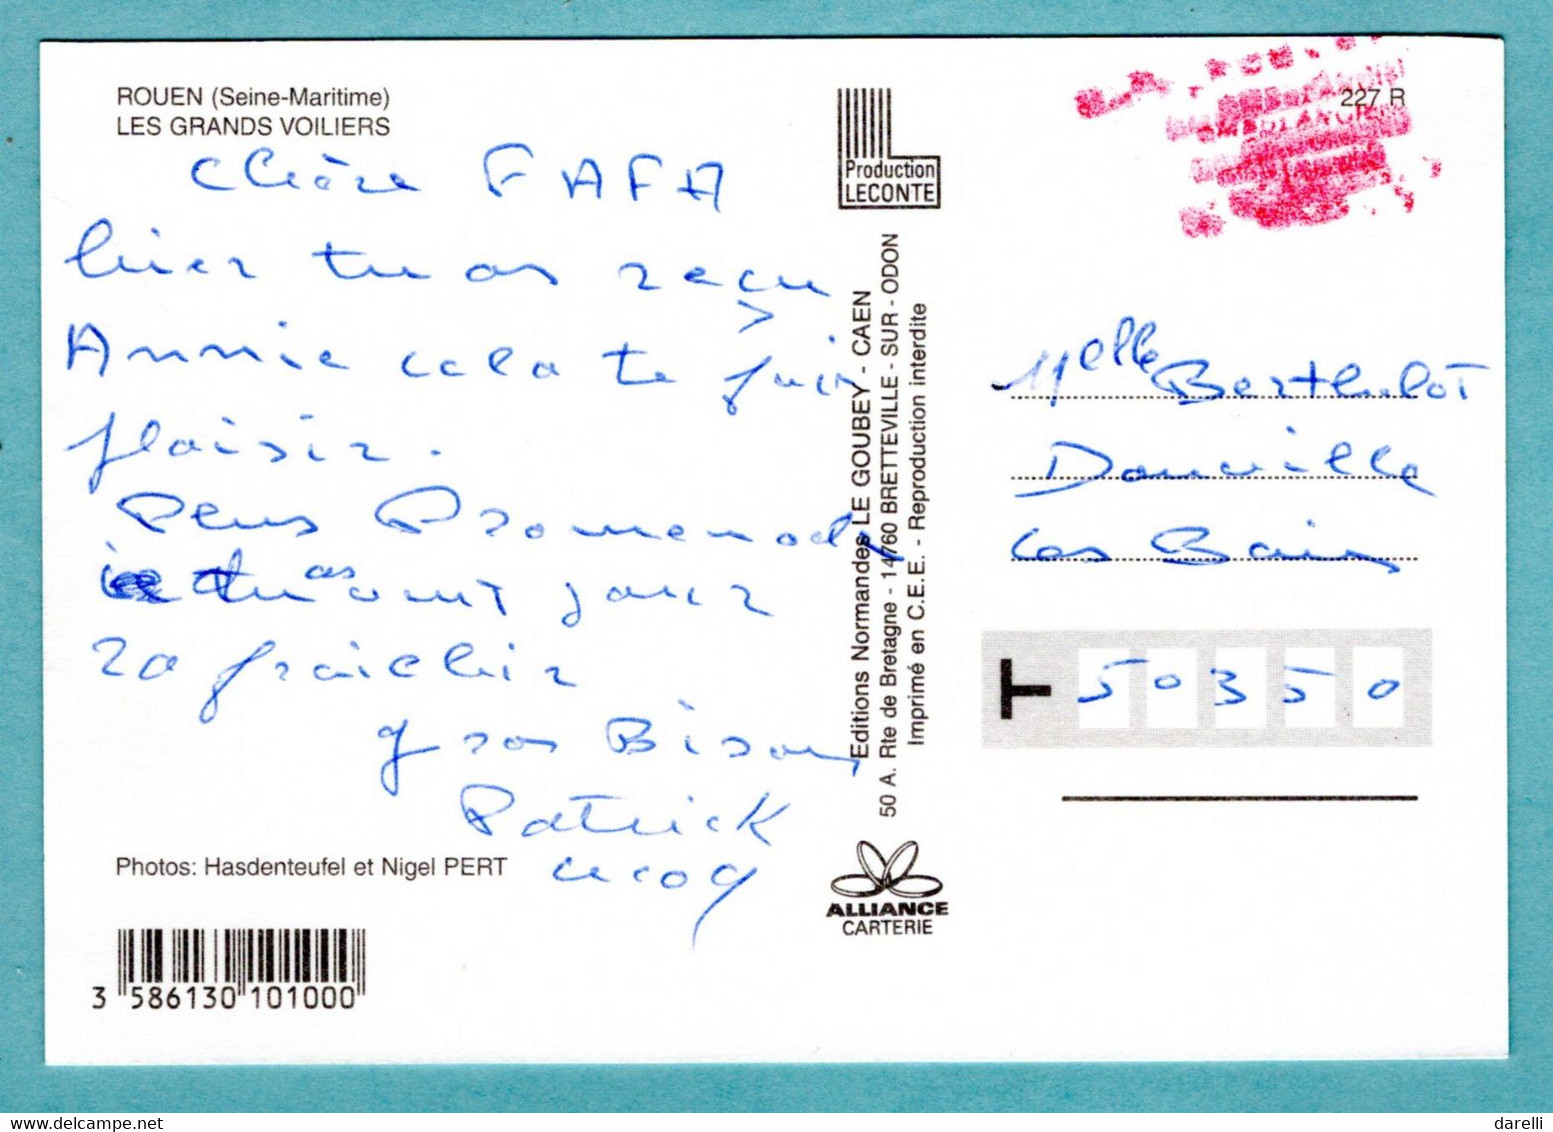 ROUEN (Seine-Maritime)
LES GRANDS VOILIERS
Chère FAFA
hier tu as reçu
Annie cela te fait
plaisir.
Plus Promenade
tu as
ra fraichir
gros Bisou
Patrick
Photos: Hasdenteufel et Nigel PERT
3 586130 101000
Production
LECONTE
Editions Normandes LE GOUBEY - CAEN
50 A. Rte de Bretagne - 14760 BRETTEVILLE - SUR - ODON
Imprimé en C.E.E. - Reproduction interdite
ALLIANCE
CARTERIE
227 R
Melle Berthelot
Donville
les Bains
T 50350
darelli